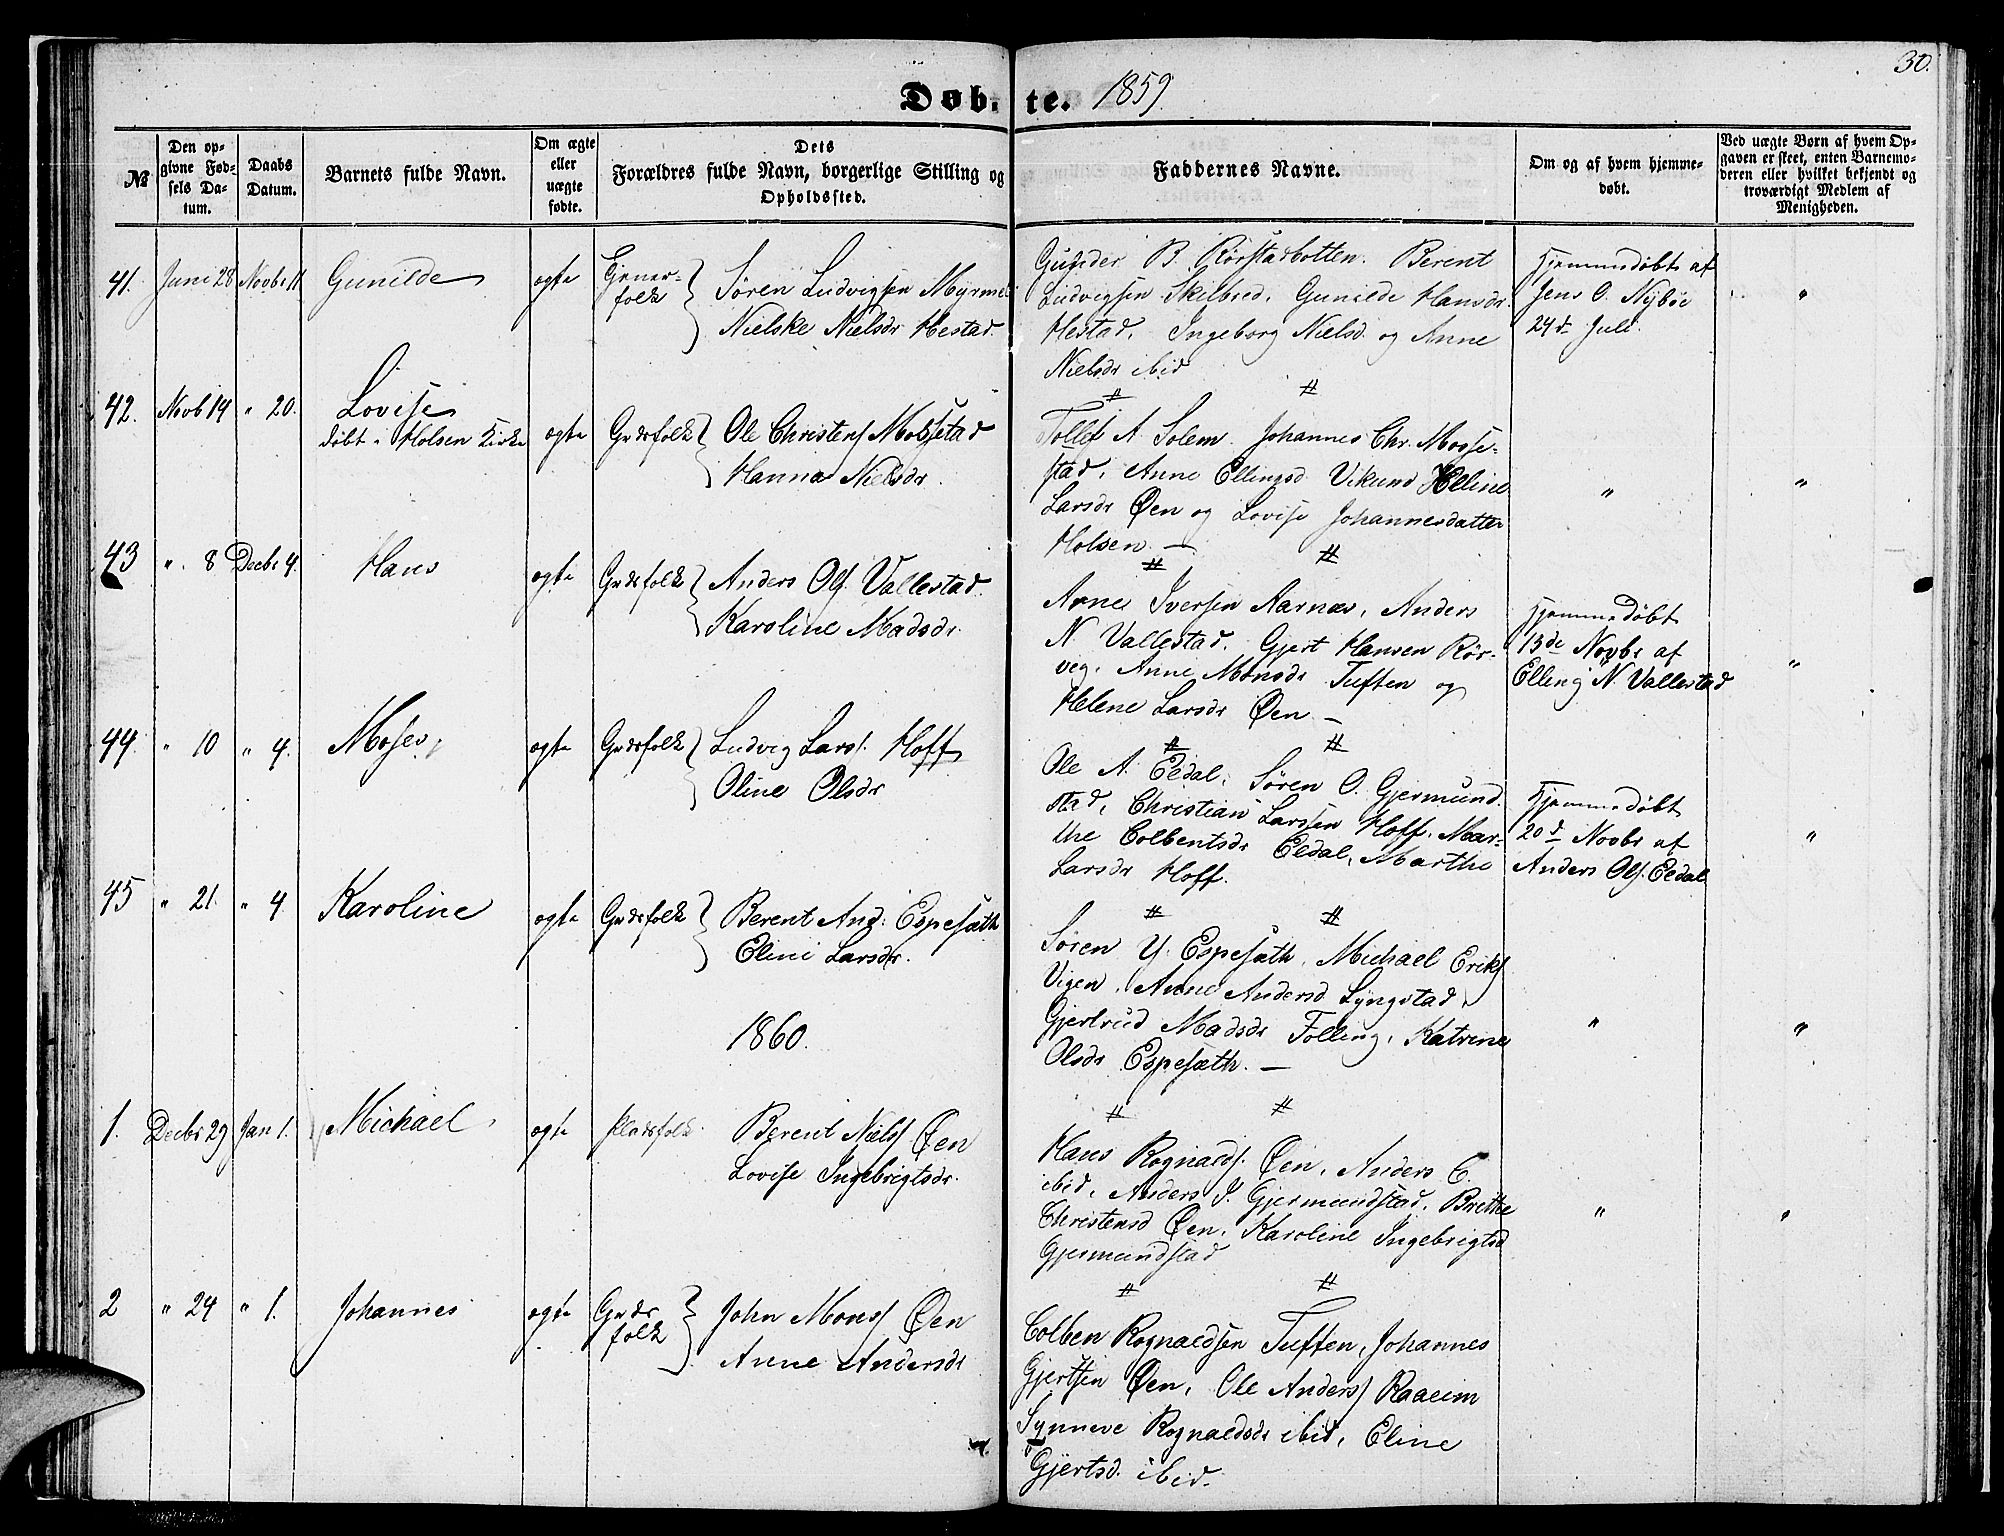 30.
Døbte. 1859
№
Den op-
givne Fød-
sels Da-
tum.
Daabs
Datum.
Barnets fulde Navn.
Om ægte
eller
uægte
fødte.
Dets
Forældres fulde Navn, borgerlige Stilling og
Opholdssted.
Faddernes Navne.
Om og af hvem hjemme-
døbt.
Ved uægte Børn af hvem Op-
gaven er skeet, enten Barnemo-
deren eller hvilket bekjendt og
troværdigt Medlem af
Menigheden.
41. Juni 28 Novbr 11 Gunilde ægte
folk
Søren Ludvigsen Myrme
Nielske Nielsdr Hestad
Gunder B. Rørstadbotten. Berent
Ludvigsen Skilbred, Gunilde Hansdr
Hestad, Ingeborg Nielsd og Anne
Nielsdr ibid
Hjemmedøbt af
Jens O. Nyböe
24d Juli.
"
# #
42. Novb 14 " 20. Lovise
døbt i Holsen Kirke
ægte Grdsfolk Ole Christens Mossestad
Hanna Nielsdr.
Tollef A. Solem. Johannes Chr. Mosse-
stad, Anne Ellingsd Vikund Helene
Larsdr Øen og Lovise Johannesdatter
Holsen —
" "
# #
43 " 8 Decbr 4. Hans ægte Grdsfolk Anders Ols Vallestad
Karoline Madsdr.
Arne Iversen Aarnes, Anders
N. Vallestad. Gjert Hansen Rör-
veg. Anne Monsdr Tuften og
Helene Larsdr Øen —
Hjemmedøbt
13de Novbr af
Elling N. Vallestad
"
# #
44. " 10 " 4. Moses ægte Grdsfolk Ludvig Lars. Hoff
Oline Olsdr
Ole A. Eldal, Søren O. Gjermund-
stad, Christian Larssen Hoff. Mar-
the Colbentsdr Eldal, Marthe
Larsdr Hoff.
Hjemmedøbt
20d Novbr af
Anders Ols. Eldal
"
# #
45 " 21. " 4. Karoline ægte Grdsfolk Berent And. Espesæth
Eline Larsdr.
Søren Y. Espesæth, Michael Eriks
Vigen, Anne Andersd Lyngstad,
Gjertrud Madsdr Folling, Katrine
Olsdr Espesæth. —
" "
1860.
# #
1. Decbr 29 Jan 1. Michael ægte Pladsfolk Berent Niels Øen
Lovise Ingebrigtsdr.
Hans Rognalds. Øen, Anders C.
ibid, Anders J. Gjermundstad, Brethe
Christensd Øen, Karoline Ingebrigtsd
Gjermundstad
" "
# #
2 " 24 " 1. Johannes ægte Grds
folk
John Mons Øen
Anne Andersdr
Colben Rognaldsen Tuften, Johannes
Gjertsen Øen, Ole Anders Raaeim
Synneve Rognaldsdr ibid, Eline
Gjertsd. ibid.